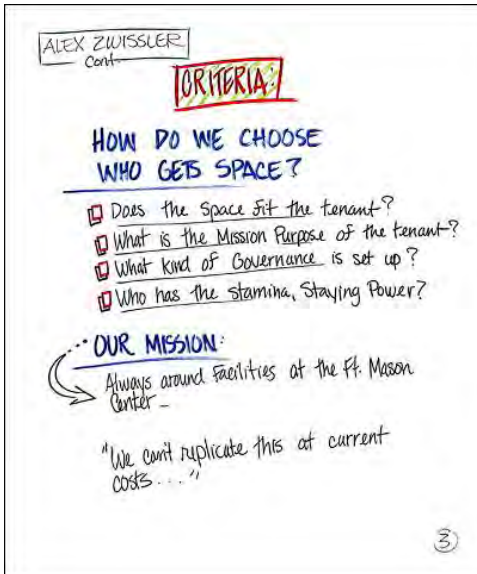 ALEX ZWISSLER
Cont-
CRITERIA:
HOW DO WE CHOOSE
WHO GETS SPACE?
Does the Space Fit the tenant?
What is the Mission Purpose of the tenant?
What Kind of Governance is set up?
Who has the stamina, Staying Power?
OUR MISSION:
Always around Facilities at the Ft. Mason
Center_
"We can't replicate this at current
costs...."
3